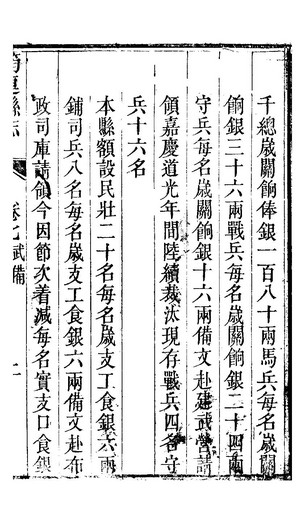 千總歲關餉俸銀一百八十兩馬兵每名歲關
餉銀三十六兩戰兵每名歲關餉銀二十四兩
守兵每名歲關餉銀十六兩備文赴建武營請
領嘉慶道光年間陸續裁汰現存戰兵四名守
兵十六名
本縣額設民壯二十名每名歲支工食銀六兩
鋪司兵八名每名歲支工食銀六兩備文赴布
政司庫請領今因節次着減每名實支口食銀
縣志
卷九 武備
二